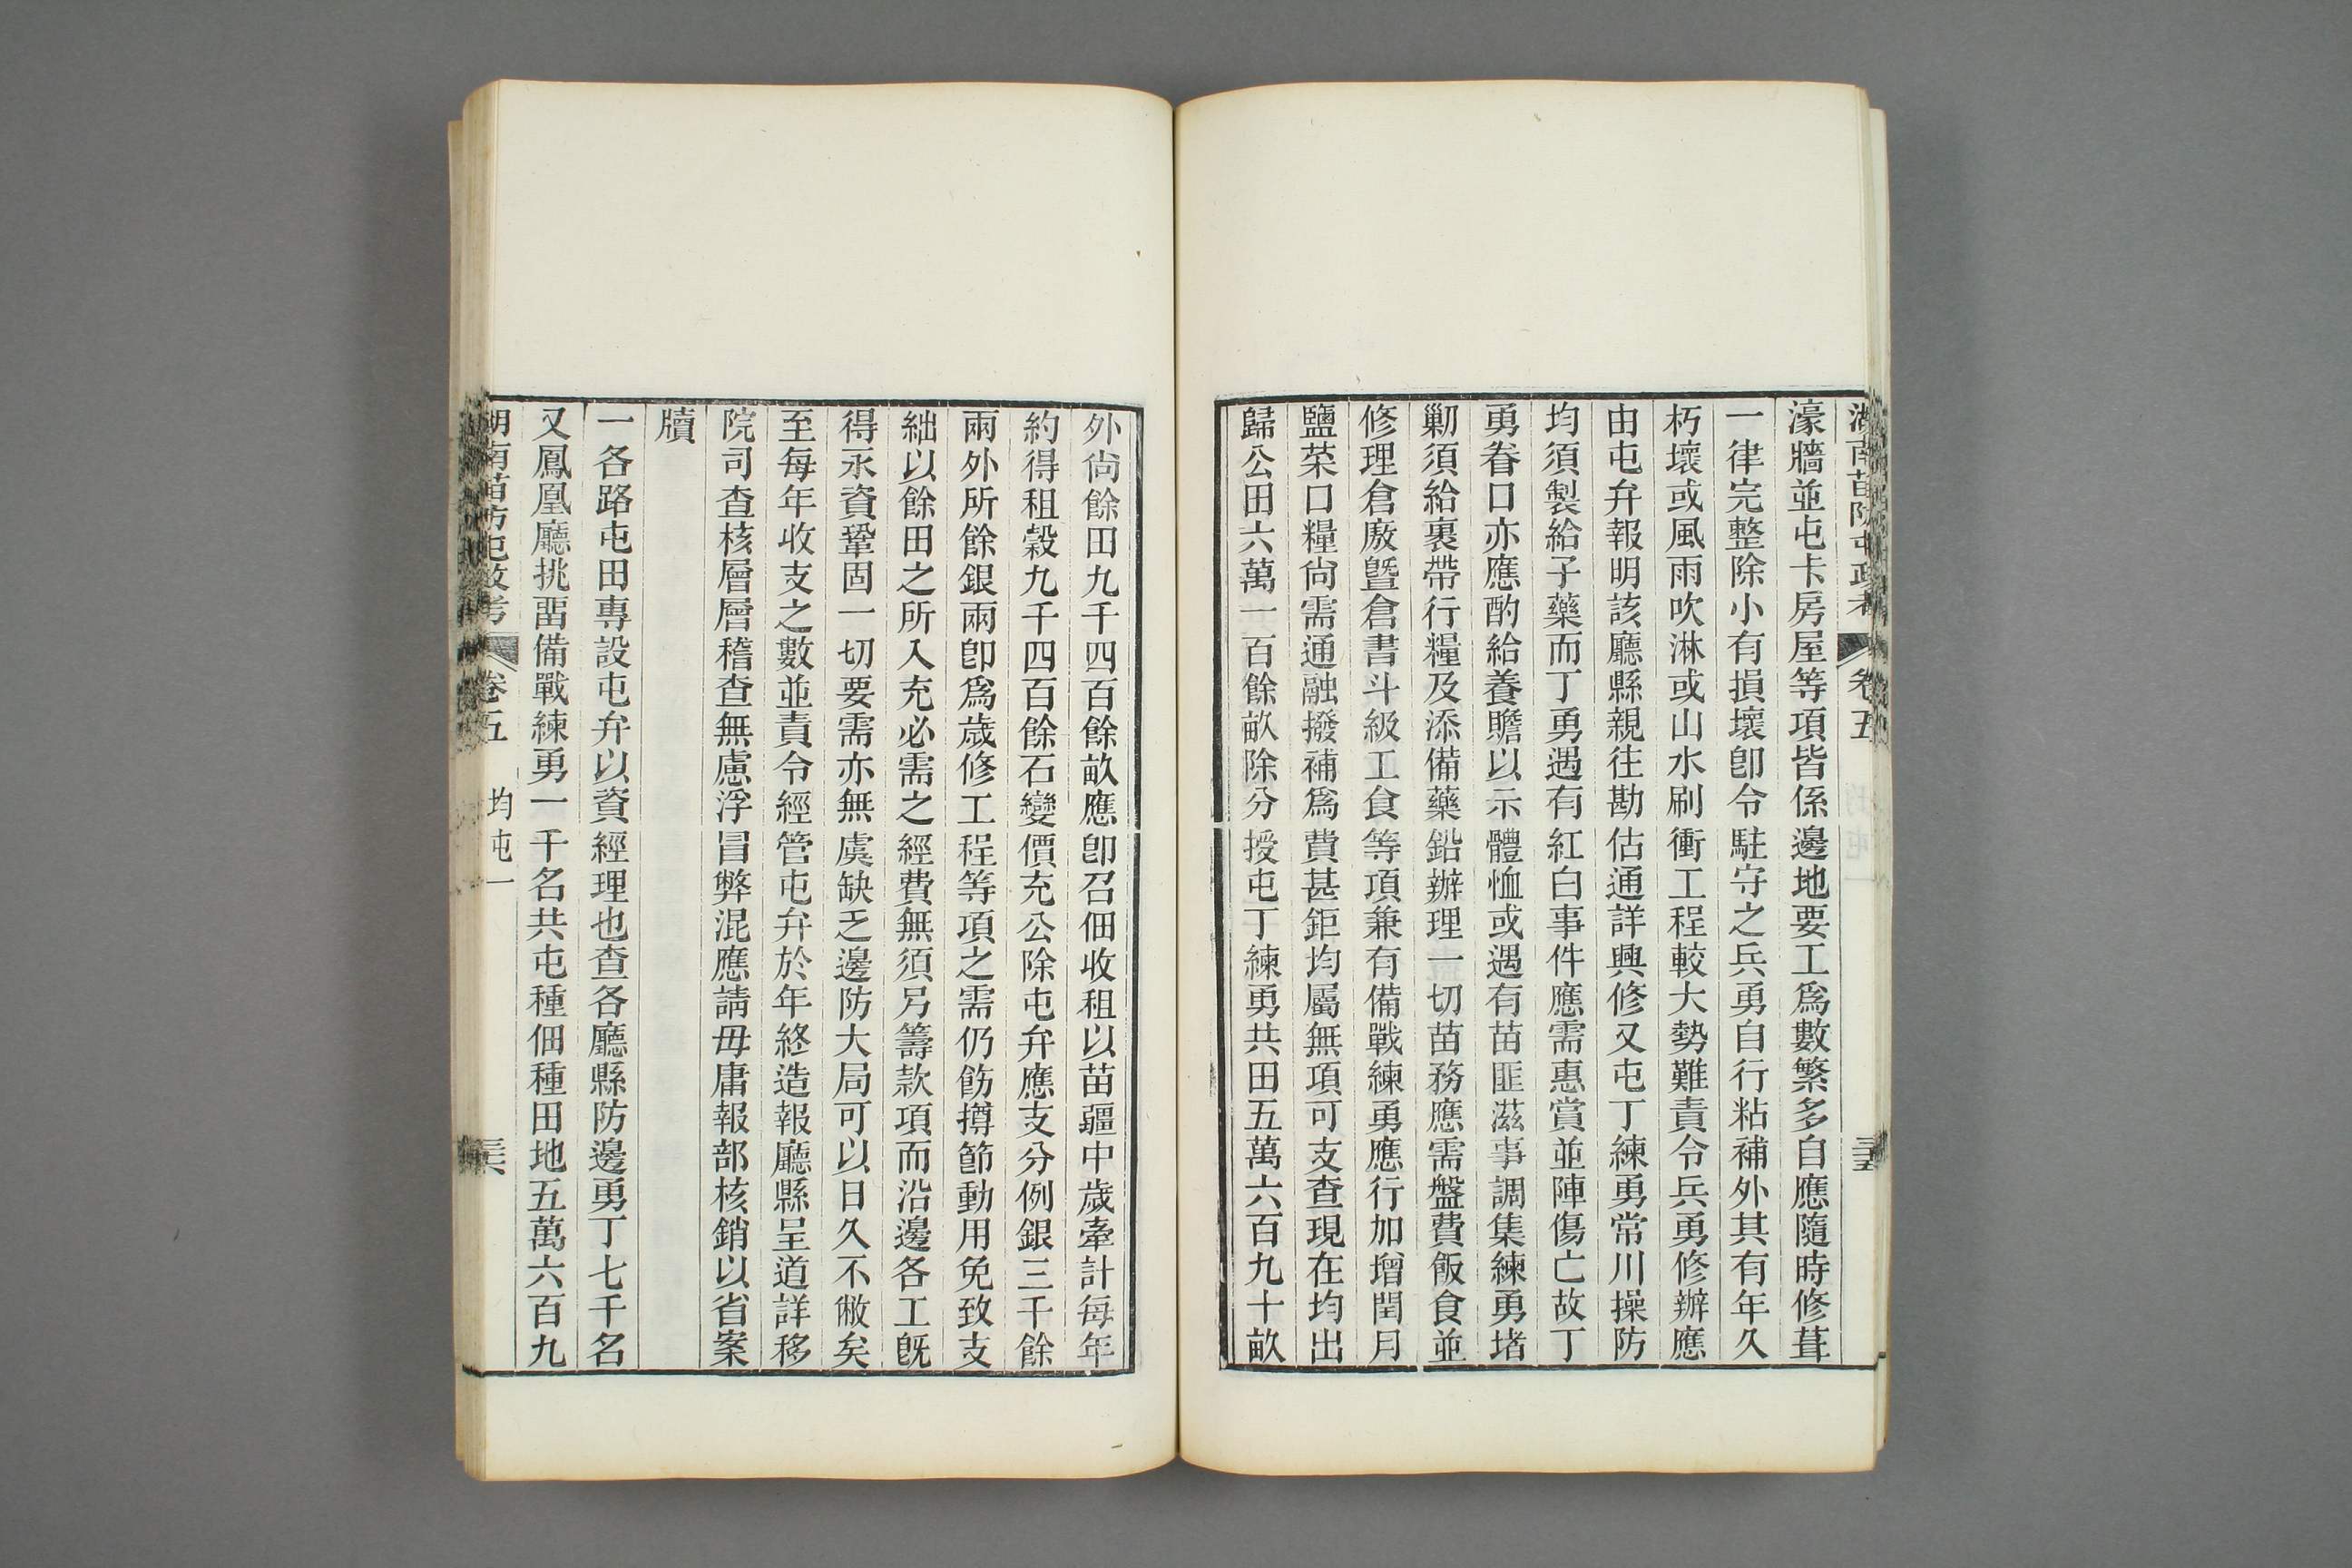 湖南苗防屯政考 卷五 三五
濠牆並屯卡房屋等項皆係邊地要工爲數繁多自應隨時修葺
一律完整除小有損壞卽令駐守之兵勇自行粘補外其有年久
朽壞或風雨吹淋或山水刷衝工程較大勢難責令兵勇修辦應
由屯弁報明該廳縣親往勘估通詳興修又屯丁練勇常川操防
均須製給子藥而丁勇遇有紅白事件應需惠賞並陣傷亡故丁
勇眷口亦應酌給養贍以示體恤或遇有苗匪滋事調集練勇堵
勦須給裹帶行糧及添備藥鉛辦理一切苗務應需盤費飯食並
修理倉廒曁倉書斗級工食等項兼有備戰練勇應行加增閏月
鹽菜口糧尙需通融撥補爲費甚鉅均屬無項可支查現在均出
歸公田六萬一百餘畝除分授屯丁練勇共田五萬六百九十畝
外尙餘田九千四百餘畝應卽召佃收租以苗疆中歲牽計每年
約得租穀九千四百餘石變價充公除屯弁應支分例銀三千餘
兩外所餘銀兩卽爲歲修工程等項之需仍飭撙節動用免致支
絀以餘田之所入充必需之經費無須另籌款項而沿邊各工旣
得永資鞏固一切要需亦無虞缺乏邊防大局可以日久不敝矣
至每年收支之數並責令經管屯弁於年終造報廳縣呈道詳移
院司查核層層稽查無慮浮冒弊混應請毋庸報部核銷以省案
牘
一各路屯田專設屯弁以資經理也查各廳縣防邊勇丁七千名
又鳳凰廳挑畱備戰練勇一千名共屯種佃種田地五萬六百九
湖南苗防屯政考 卷五 均屯一 三六